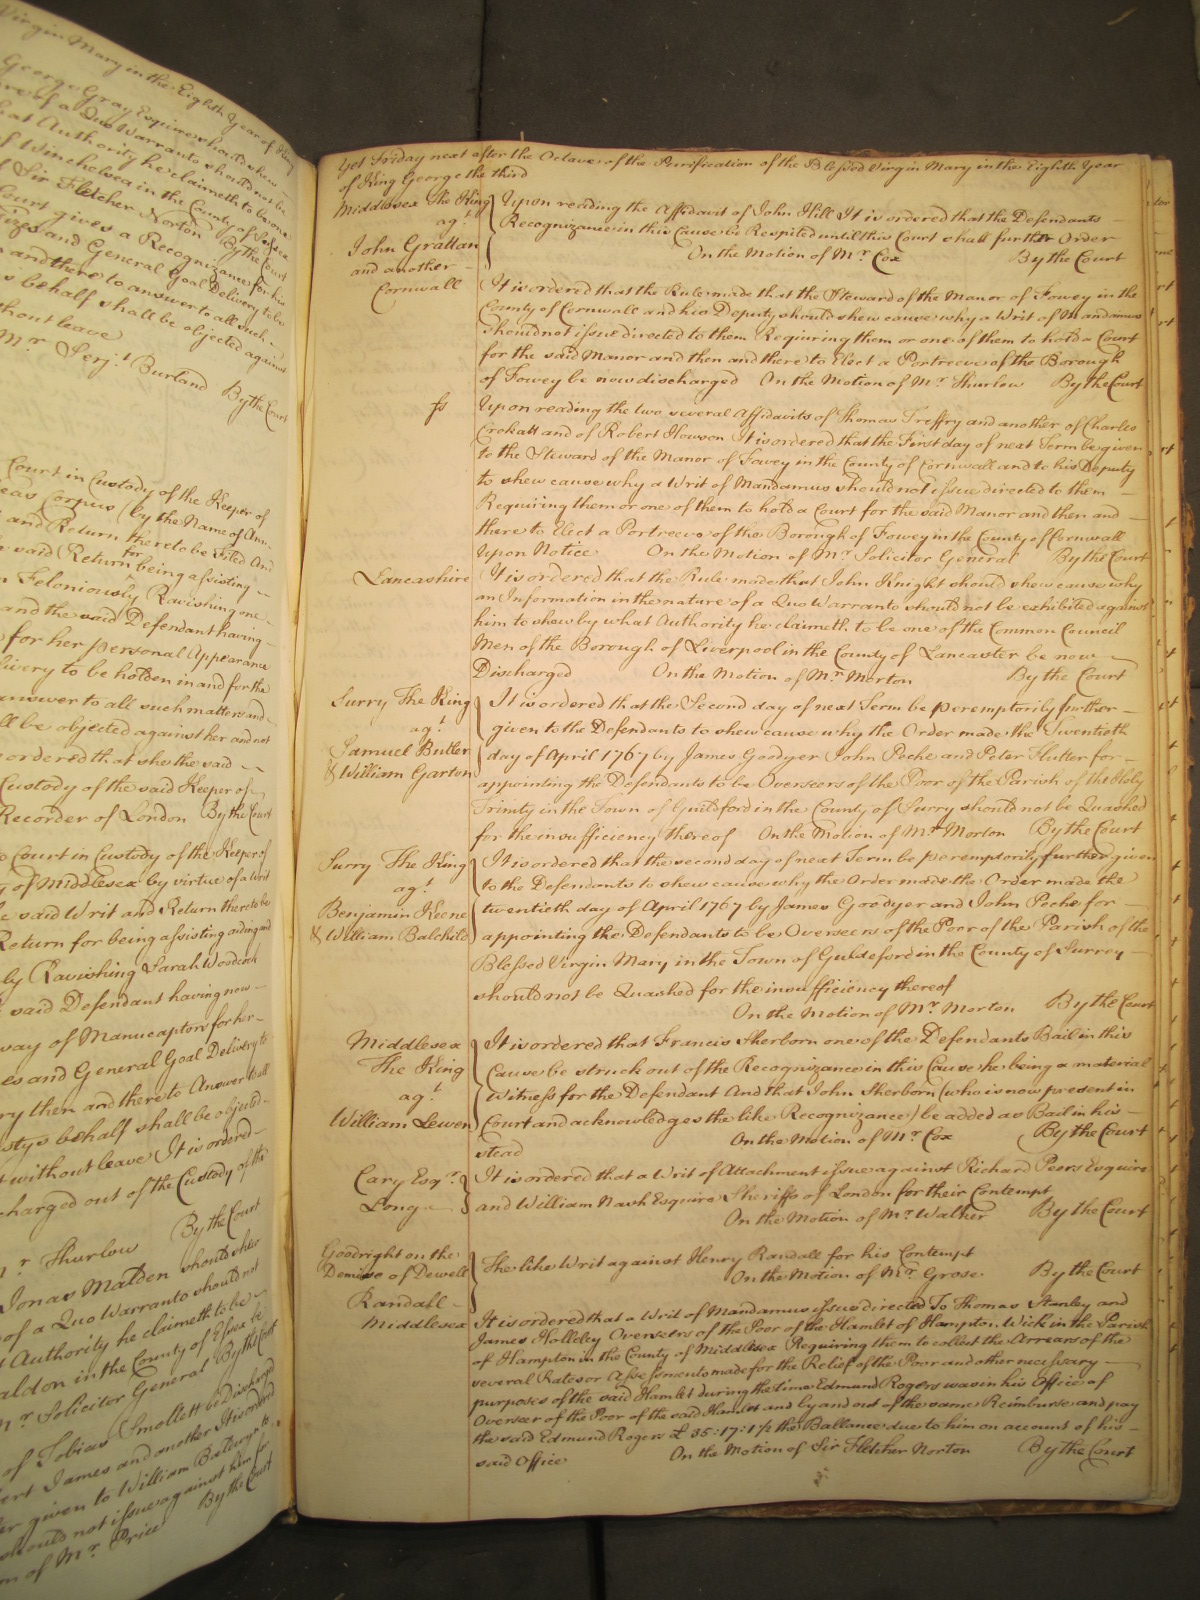 Virgin Mary in the Eighth Year of King
George Gray Esquire should shew
of a Quo Warranto should not be
Authority he claimeth to be one
of Winchelsea in the County of Sussex
Sir Fletcher Norton By the Court
Court gives a Recognizance for his
and General Goal Delivery to be
and there to answer to all such
behalf shall be objected against
without leave
Mr. Serjt. Burland By the Court
Court in Custody of the Keeper of
Corpus (by the Name of Ann
and Return thereto be Filed And
said Return for being assisting
Feloniously Ravishing one
and the said Defendant having
for her personal Appearance
Delivery to be holden in and for the
answer to all such matters and
be objected against her and not
ordered that she the said
Custody of the said Keeper of
Recorder of London By the Court
Court in Custody of the Keeper of
of Middlesex by virtue of a Writ
said Writ and Return thereto be
Return for being assisting aiding and
by Ravishing Sarah Woodcock
said Defendant having now
way of Manucaptors for her
and General Goal Delivery to
then and there to Answer to all
behalf shall be objected
without leave It is ordered
discharged out of the Custody of the
Mr. Thurlow By the Court
Jonas Malden should shew
of a Quo Warranto should not
Authority he claimeth to be
Maldon in the County of Essex be
Mr. Solicitor General By the Court
of Tobias Smollett be Discharged
James and another It is ordered
given to William
should not issue against him for
of Mr. Price By the Court
Yet Friday next after the Octave of the Purification of the Blessed Virgin Mary in the Eighth Year
of King George the third
Middlesex The King
agt.
John Grattan
and another
Upon reading the Affidavit of John Hill It is ordered that the Defendants
Recognizance in this Cause be Respited until this Court shall further Order
On the Motion of Mr. Cox By the Court
Cornwall
It is ordered that the Rule made that the Steward of the Manor of Fowey in the
County of Cornwall and his Deputy should shew cause why a Writ of Mandamus
should not issue directed to them Requiring them or one of them to hold a Court
for the said Manor and then and there to Elect a Portreeve of the Borough
of Fowey be now discharged On the Motion of Mr. Thurlow By the Court
ss
Upon reading the two several Affidavits of Thomas Treffry and another of Charles
Crokatt and of Robert Howson It is ordered that the First day of next Term be given
to the Steward of the Manor of Fowey in the County of Cornwall and to his Deputy
to shew cause why a Writ of Mandamus should not issue directed to them
Requiring them or one of them to hold a Court for the said Manor and then and
there to Elect a Portreeve of the Borough of Fowey in the County of Cornwall
Upon Notice On the Motion of Mr. Solicitor General By the Court
Lancashire
It is ordered that the Rule made that John Knight should shew cause why
an Information in the nature of a Quo Warranto should not be exhibited against
him to shew by what Authority he claimeth to be one of the Common Council
Men of the Borough of Liverpool in the County of Lancaster be now
Discharged On the Motion of Mr. Morton By the Court
Surry The King
agt.
Samuel Butler
& William Garton
It is ordered that the Second day of next Term be peremptorily further
given to the Defendants to shew cause why the Order made the Twentieth
day of April 1767 by James Goodyer John Peche and Peter Flutter for
appointing the Defendants to be Overseers of the Poor of the Parish of the Holy
Trinity in the Town of Guildford in the County of Surry should not be Quashed
for the insufficiency thereof On the Motion of Mr. Morton By the Court
Surry The King
agt.
Benjamin Keene
& William Balchild
It is ordered that the second day of next Term be peremptorily further given
to the Defendants to shew cause why the Order made the Order made the
twentieth day of April 1767 by James Goodyer and John Peche for
appointing the Defendants to be Overseers of the Poor of the Parish of the
Blessed Virgin Mary in the Town of Guldeford in the County of Surrey
should not be Quashed for the insufficiency thereof
On the Motion of Mr. Morton By the Court
Middlesex
The King
agt.
William Lewen
It is ordered that Francis Sherborn one of the Defendants Bail in this
Cause be struck out of the Recognizance in this Cause he being a material
Witness for the Defendant And that John Sherborn (who is now present in
Court and acknowledges the like Recognizance) be added as Bail in his
stead On the Motion of Mr. Cox By the Court
Cary Esqr.
Long
It is ordered that a Writ of Attachment issue against Richard Peers Esquire
and William Nash Esquire Sheriffs of London for their Contempt
On the Motion of Mr. Walker By the Court
Goodright on the
Demise of Dewell
Randall
The like Writ against Henry Randall for his Contempt
On the Motion of Mr. Grose By the Court
Middlesex
It is ordered that a Writ of Mandamus issue directed To Thomas Stanley and
James Holleley Overseers of the Poor of the Hamlet of Hampton Wick in the Parish
of Hampton in the County of Middlesex Requiring them to collect the Arrears of the
several Rates or Assessments made for the Relief of the Poor and other necessary
purposes of the said Hamlet during the time Edmund Rogers was in his Office of
Overseer of the Poor of the said Hamlet and by and out of the same Reimburse and pay
the said Edmund Rogers £35:17:1½ the Ballance due to him on account of his
said Office On the Motion of Sir Fletcher Norton By the Court